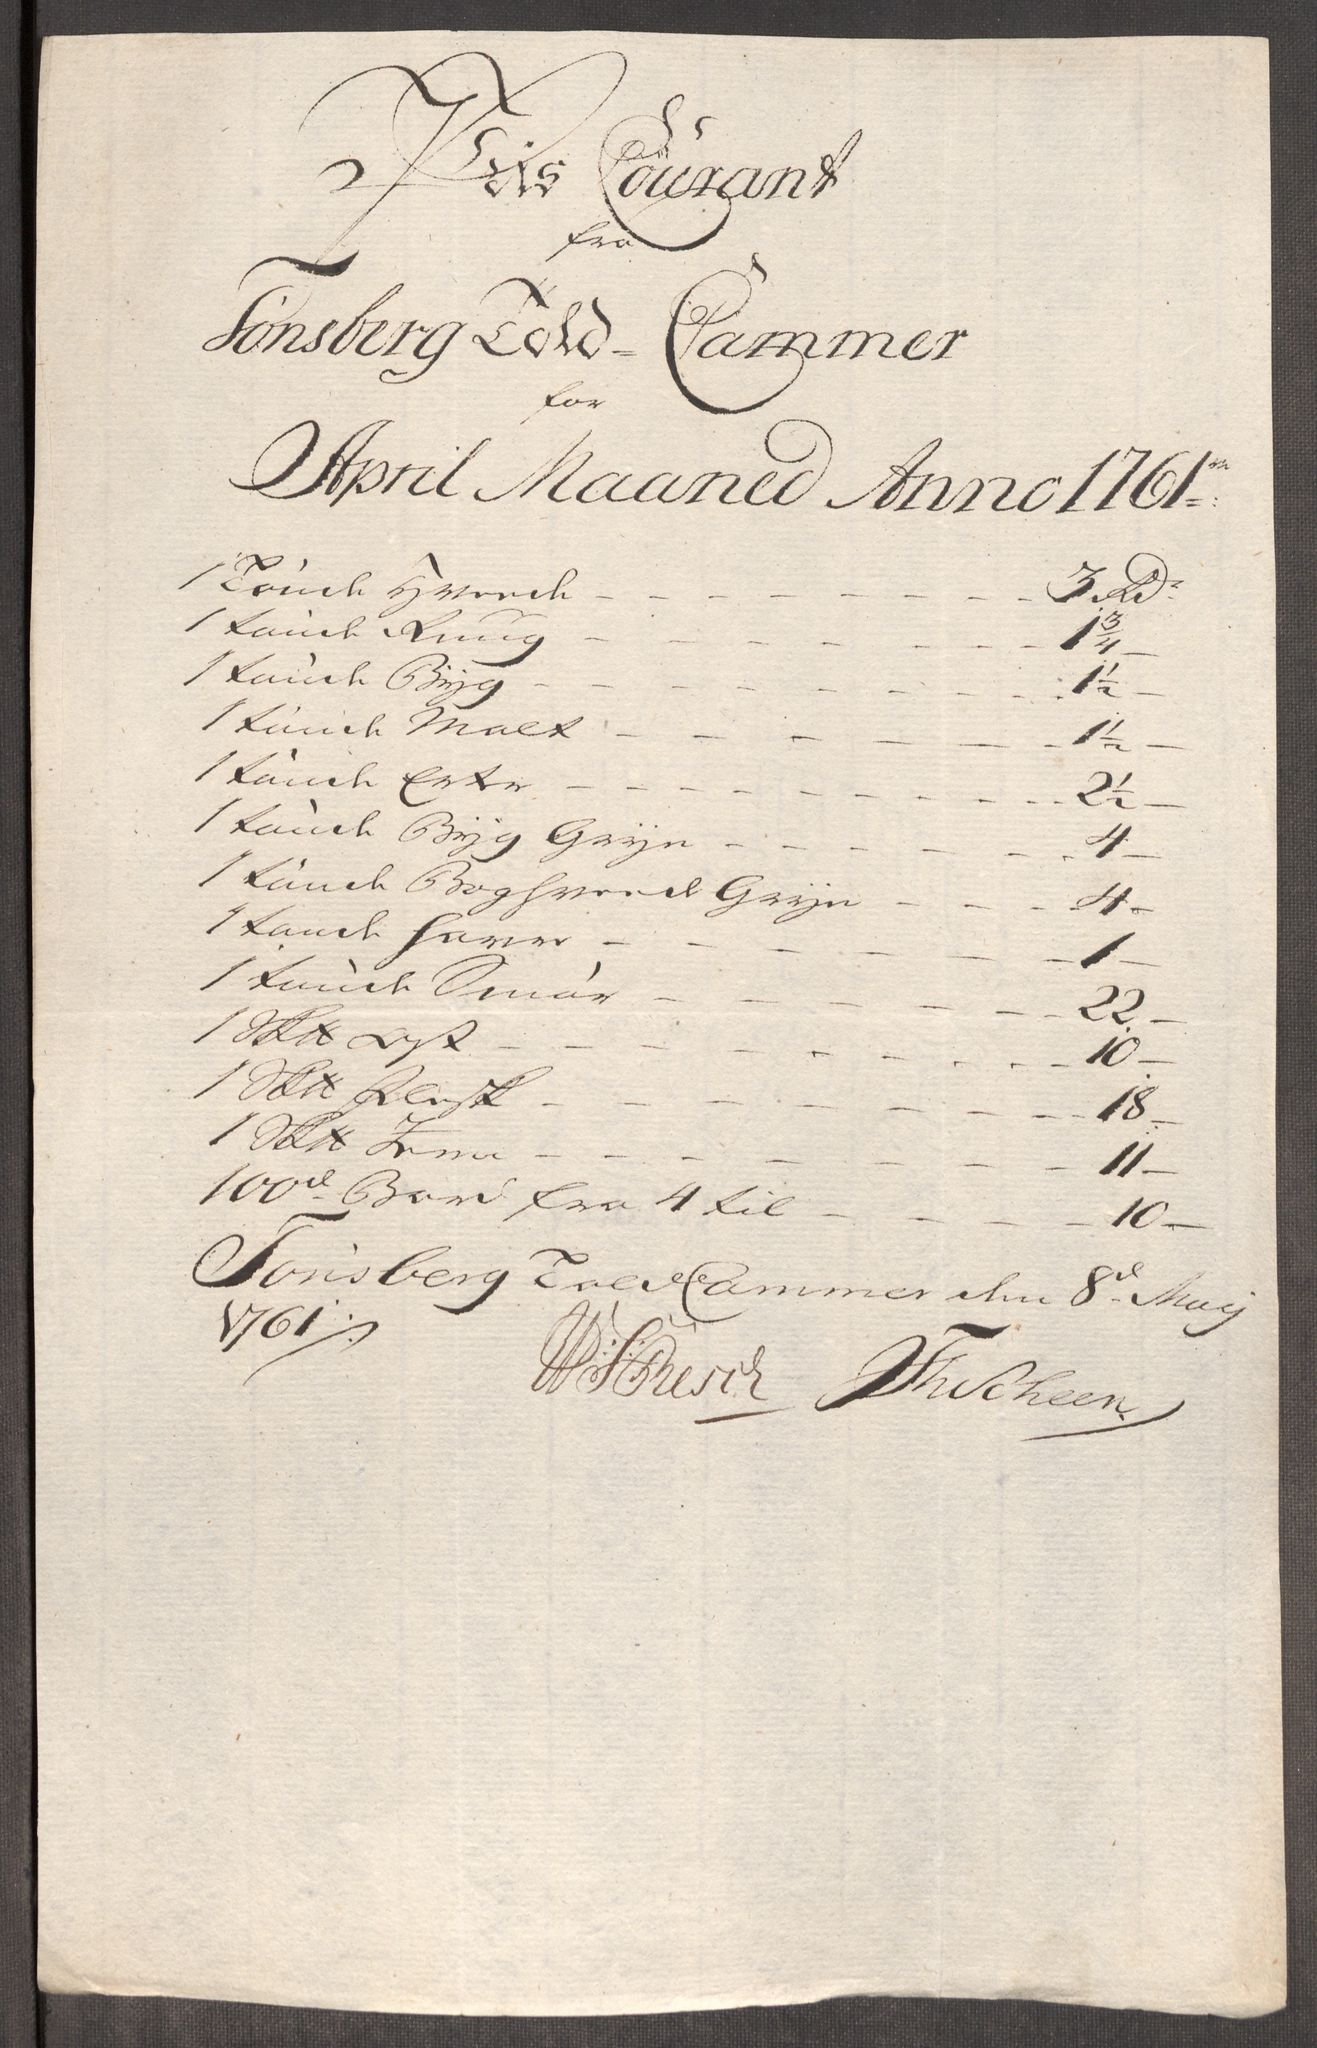 Priis Courant
fra
Tönsberg Told-Cammer
for
April Maaned Anno 1761
1 Tönde Hveede - - - 3 Rd
1 tönde Rug - - - 1 3/4 -
1 tönde Byg - - - 1 1/2 -
1 tönde Malt - - - 1 1/2 -
1 tönde Erter - - - 2 1/2 -
1 tönde Byg Gryn - - - 4 -
1 tönde Boghveede Gryn - - - 4 -
1 tönde Havre - - - 1 -
1 tönde Smör - - - 22 -
1 Sk℔ Ost - - - 10 -
1 Sk℔ Flesk - - - 18 -
1 Sk℔ - - - 11 -
100d Bord fra 4 til - - - 10 -
Tönsberg Told Cammer den 8d Maij
1761
Resch Scheen